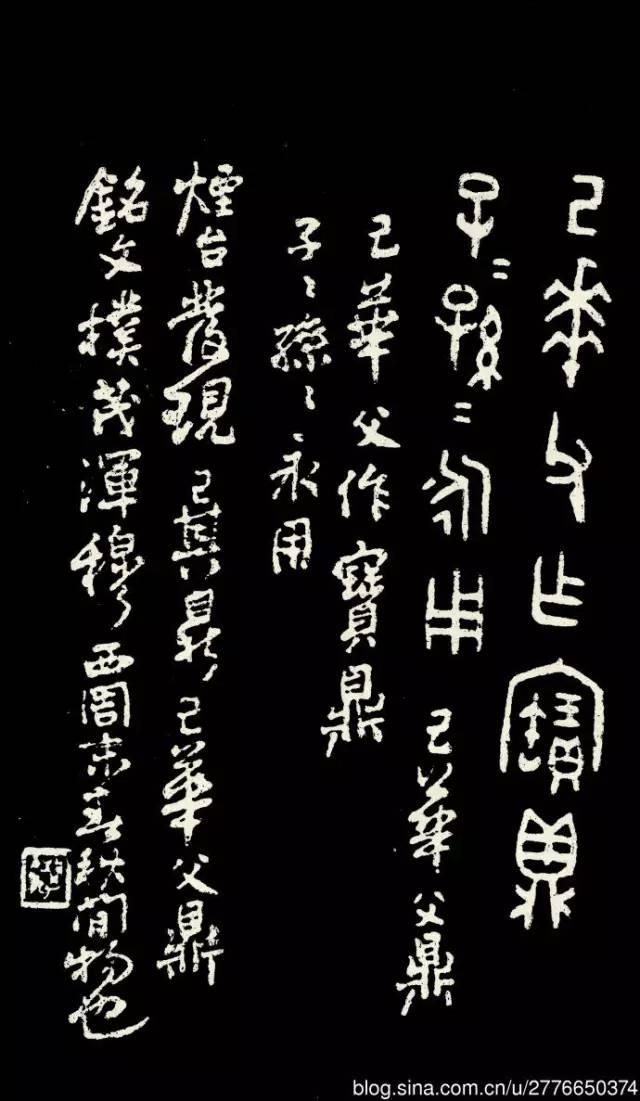 己華父作寶鼎
子〻孫〻永用
己華父鼎
己華父作寶鼎
子〻孫〻永用
煙台發現己其鼎己華父鼎
銘文樸茂渾穆西周末春秋間物也
blog.sina.com.cn/u/2776650374